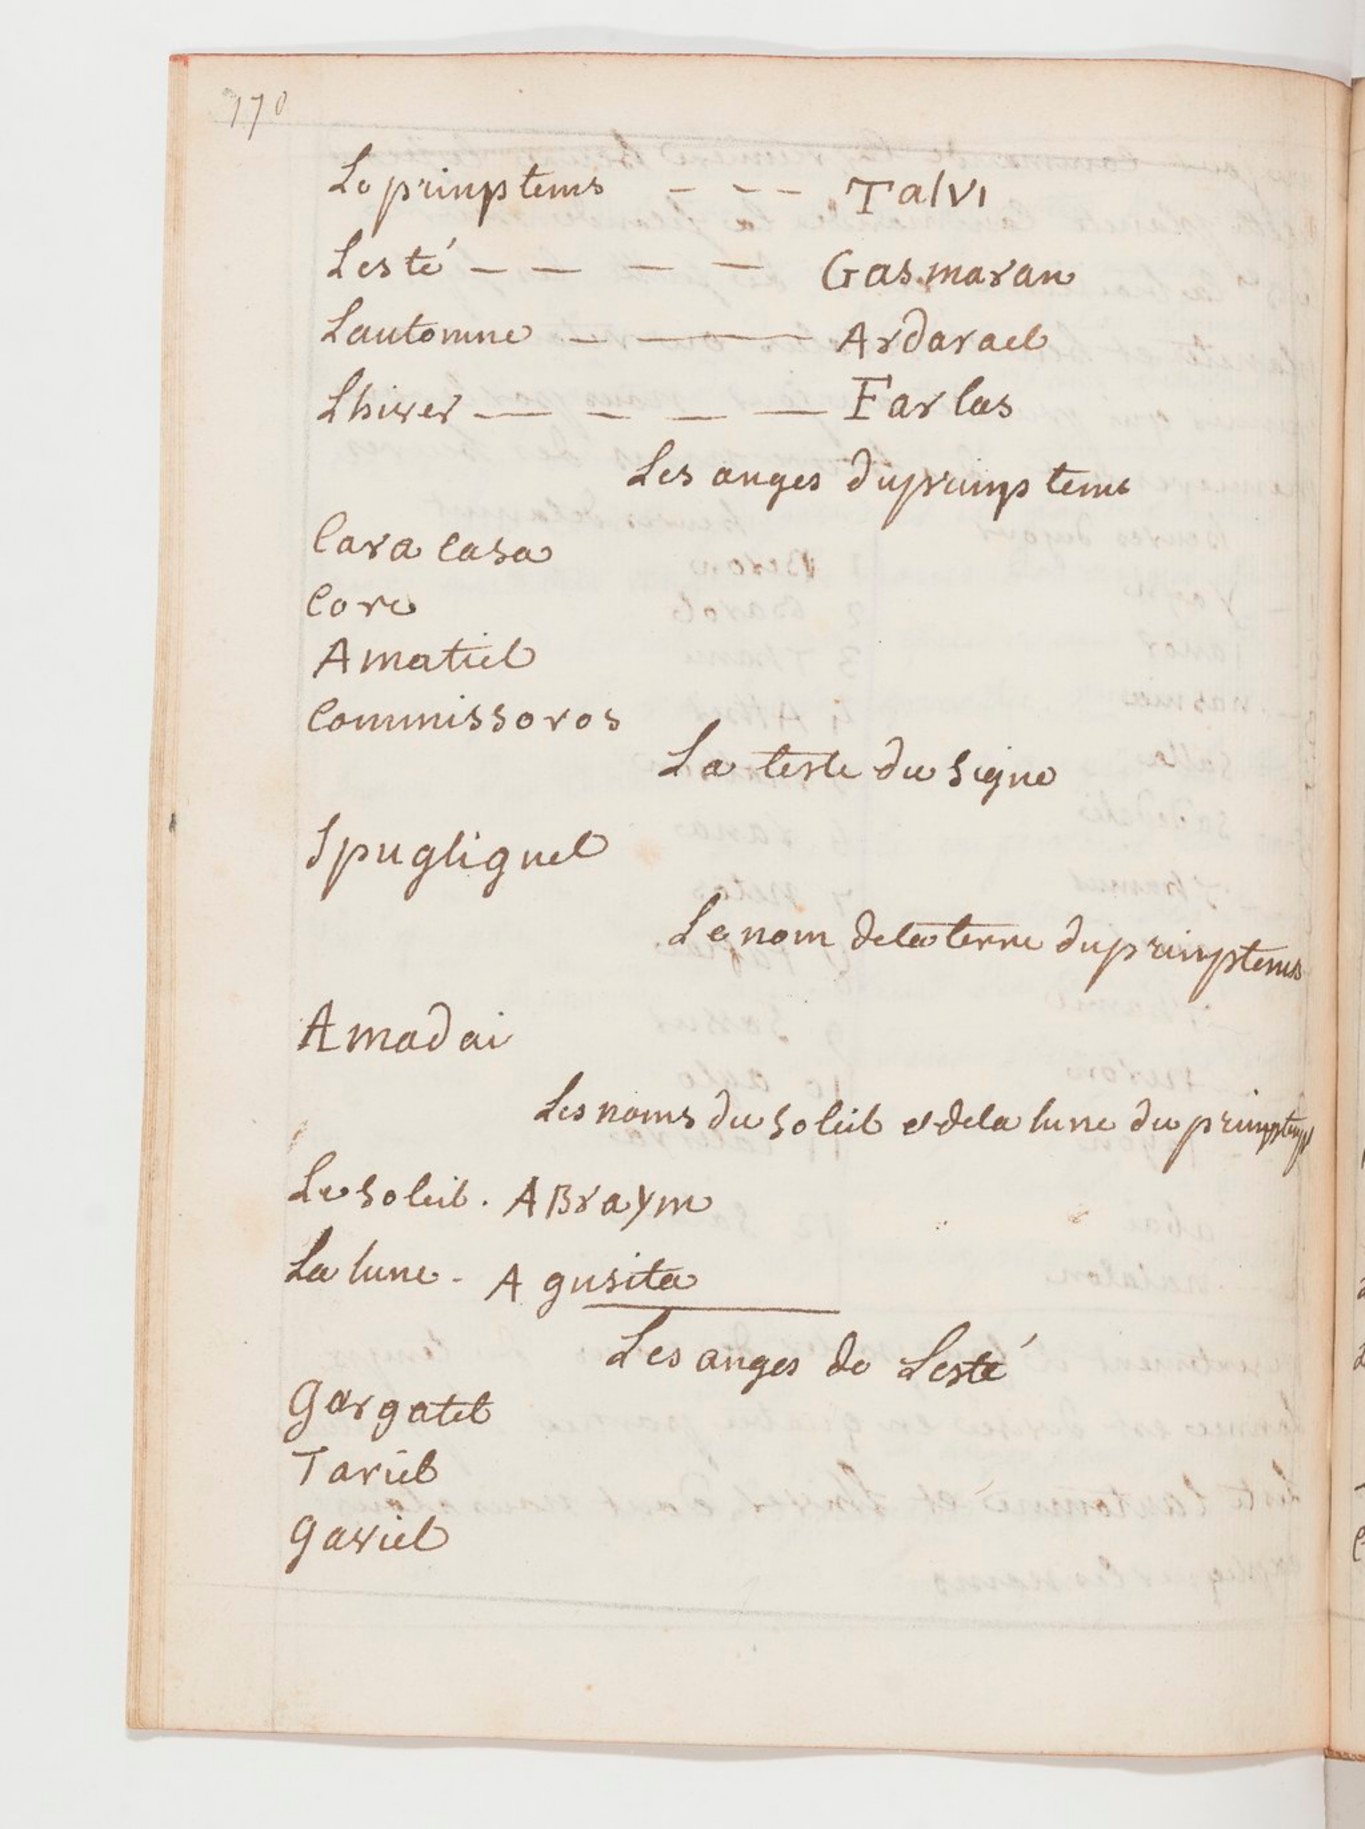 170
Le prinptems - - - Talvi
Lesté - - - - Gasmaran
Lautomne - - - Ardarael
Lhiver - - - - Farlas
Les anges du prinptems
Caracasa
Core
Amatiel
Commissoros
La teste du signe
Spugliguel
Le nom de la terre du prinptems
Amadai
Les noms du soleil et de la lune du prinptemps
Le soleil. ABraym
La lune - Agusita
Les anges de Lesté
Gargatel
Tariel
Gaviel